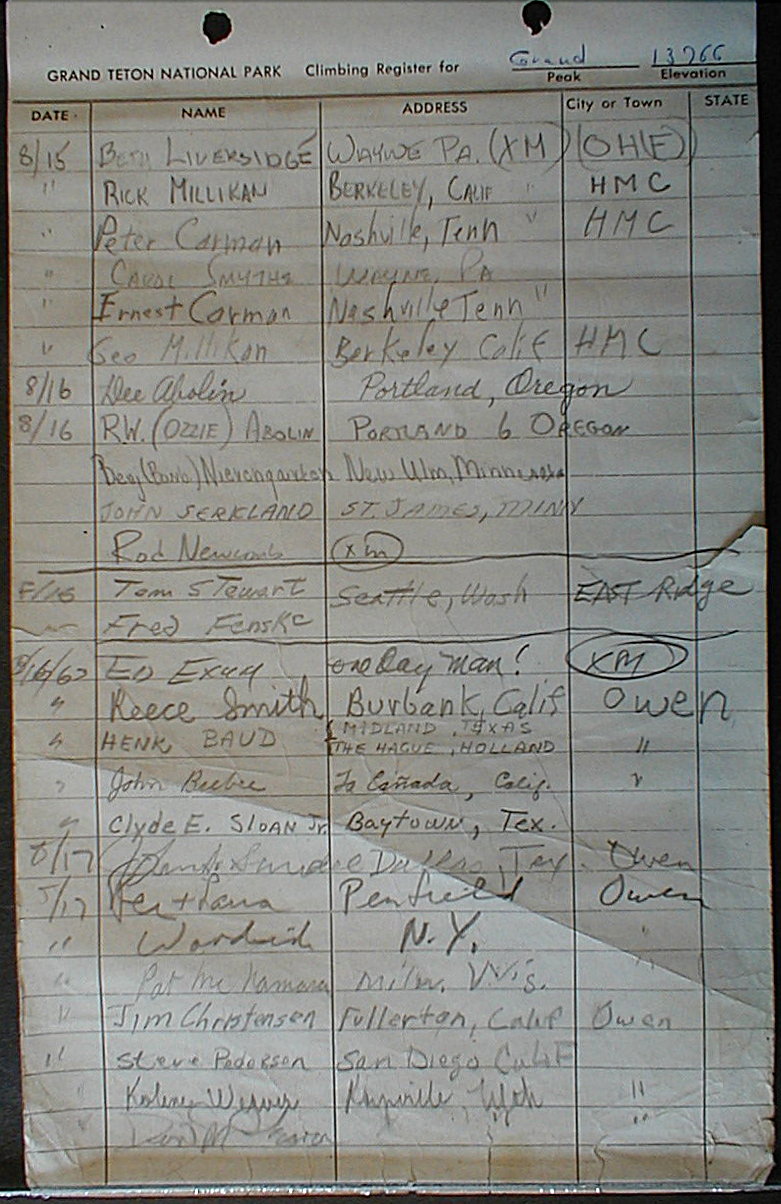 GRAND TETON NATIONAL PARK Climbing Register for Grand 13766
Peak Elevation
DATE NAME ADDRESS City or Town STATE
8/15 BETH LIVERSIDGE WAYNE PA. (XM) (OH(E))
" RICK MILLIKAN BERKELEY, CALIF " HMC
" Peter Carman Nashville, Tenn " HMC
" CAROL SMYTHE WAYNE, PA
" Ernest Carman Nashville Tenn "
" Geo Millikan Berkeley Calif HMC
8/16 Dee Abolin Portland, Oregon
8/16 R.W. (OZZIE) ABOLIN PORTLAND 6 OREGON
New Ulm, Minnesota
JOHN SERKLAND ST. JAMES, MINN
Rod Newcomb (xm)
8/16 Tom Stewart Seattle, Wash EAST Ridge
Fred Fenske
8/16/62 ED EXUM one Day man! XM
" Reece Smith Burbank, Calif Owen
" HENK BAUD { MIDLAND, TEXAS
THE HAGUE, HOLLAND "
" John Beebe La Cañada, Calif. "
" Clyde E. SLOAN Jr. Baytown, Tex.
8/17 Dallas, Tex. Owen
8/17 Penfield Owen
" N.Y. "
" Pat McNamara Milw. Wis.
" Jim Christensen Fullerton, Calif Owen
" Steve Pederson San Diego Calif
" Weaver Kaysville, Utah "
" " "